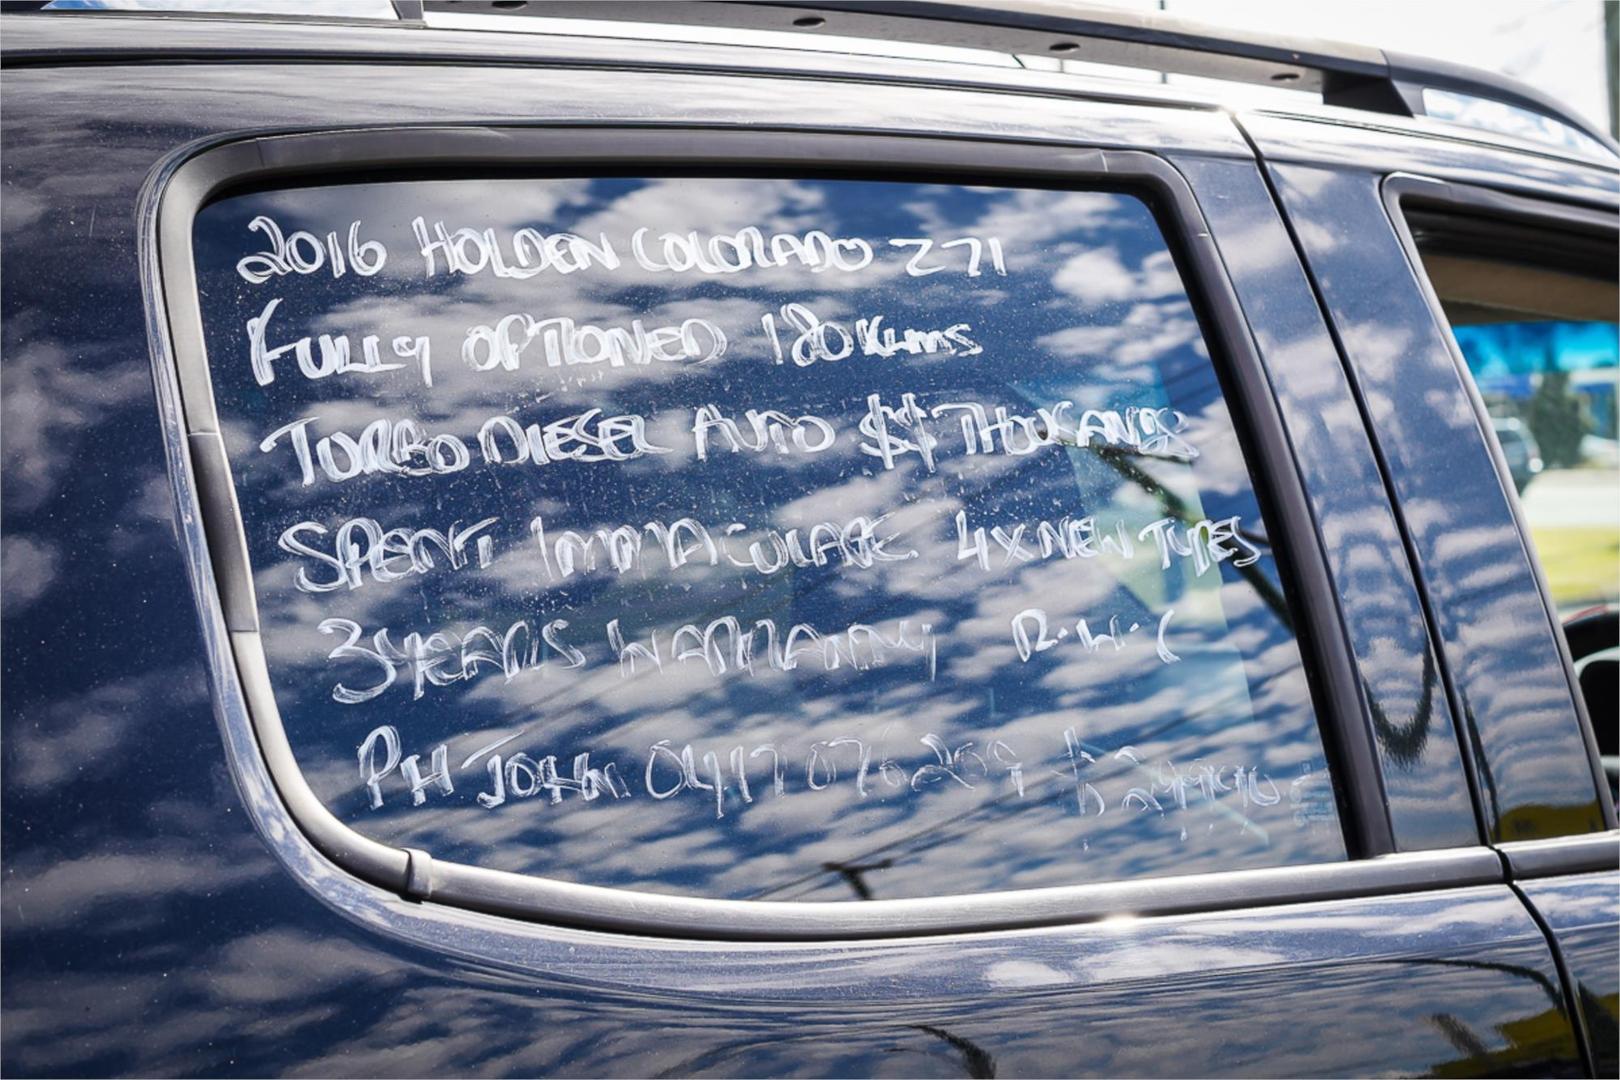 2016 HOLDEN COLORADO Z71
FULLY OPTIONED 180KLMS
TURBO DIESEL AUTO $$ THOUSANDS
SPENT IMMACULATE 4X NEW TYRES
3 YEARS WARRANTY R.W.C
PH JOHN 0417 076 209 $